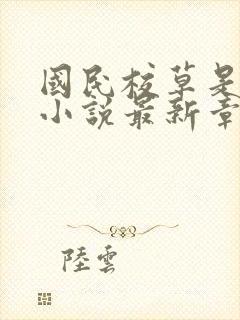 國民校草是
小說最新章
陸雲